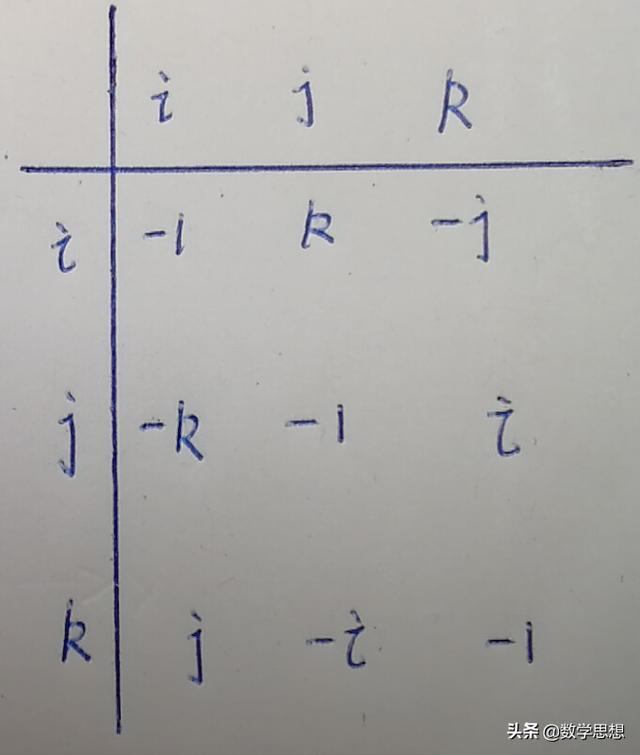 i j k
i -1 k -j
j -k -1 i
k j -i -1
头条 @数学思想